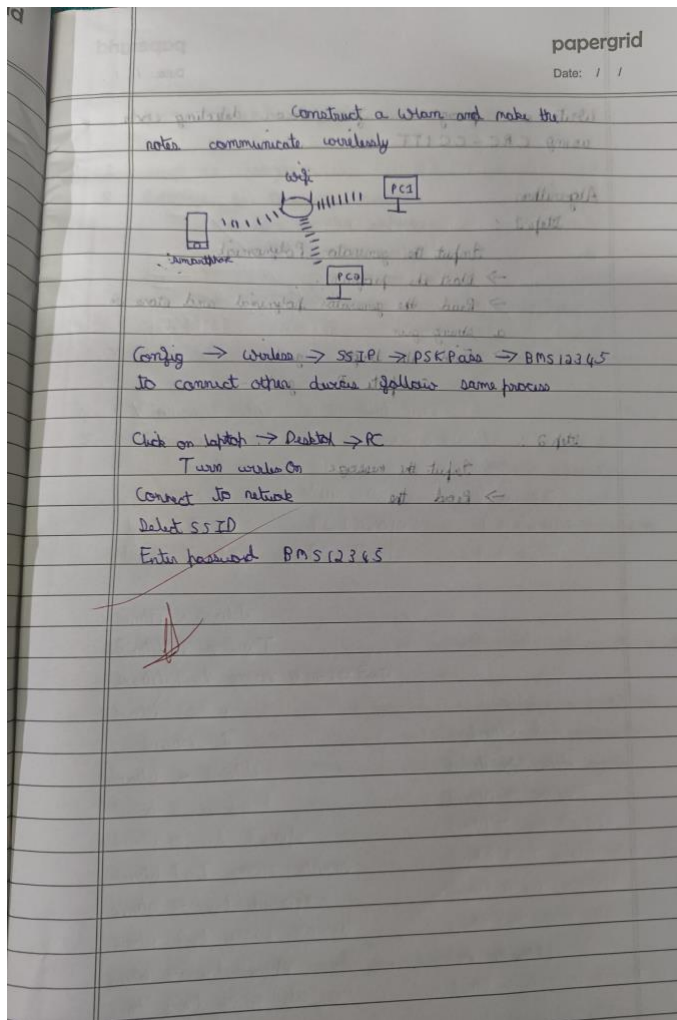 papergrid
Date: / /
Construct a WLAN and make the
notes communicate wirelessly
wifi
PC1
smartphone
PC0
Config → wireless → SSIP → PSKPass → BMS12345
to connect other devices follow same process
Click on laptop → Desktop → PC
Turn wireless On
Connect to network
Select SSID
Enter password BMS12345